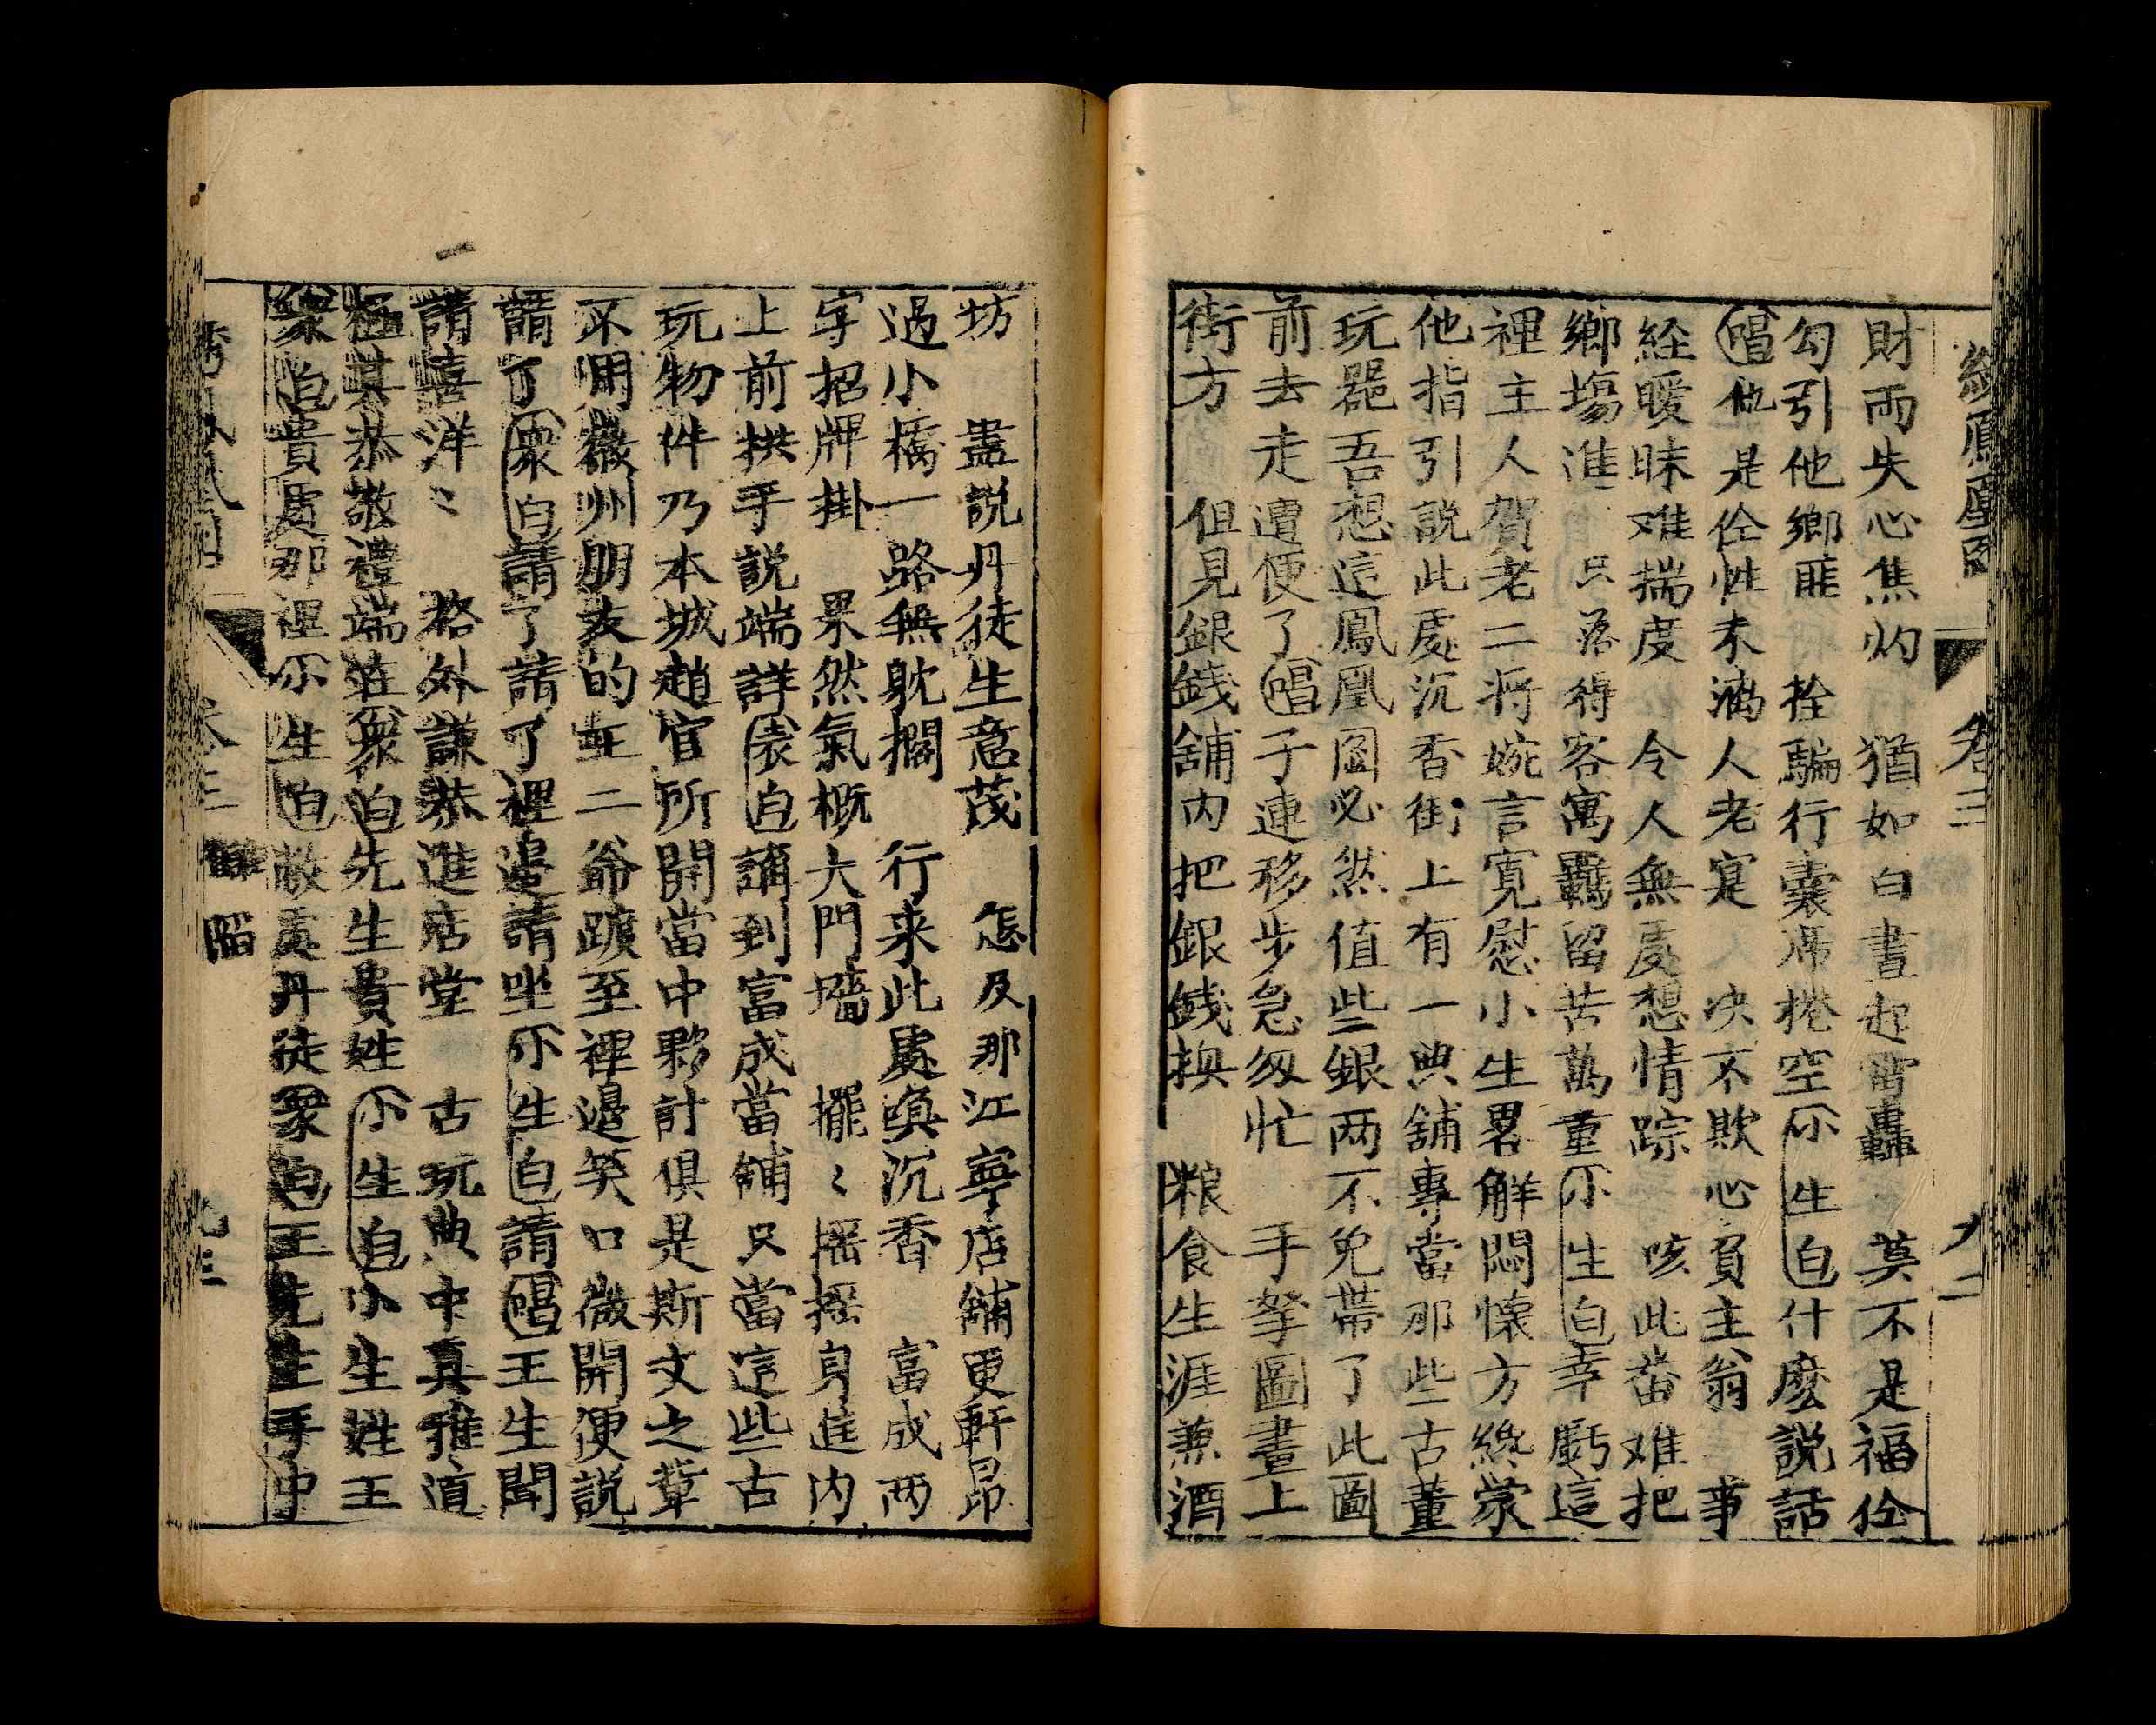 財而失心焦灼　猶如白晝起雷轟　莫不是福佺
勾引他鄉匪　拴騙行囊席捲空小生白什麽説話
唱他是佺性未滿人老寔　决不欺心負主翁　事
経曖昧难揣度　令人無处想情踪　咳此畨难把
鄉塲進　只落得客寓羈留苦萬重小生白幸虧這
裡主人賀老二将婉言寛慰小生畧解悶懷方纔蒙
他指引説此處沉香街上有一典舖專當那些古董
玩噐吾想這鳳凰圖必然值些銀两不免帶了此圖
前去走遭便了唱子連移步急忽忙　手拏圖畫上
街方　但見銀錢舖内把銀錢换　粮食生涯兼酒
卷三
九二
坊　盡説丹徒生意茂　怎及那江寧店舖更軒昂
過小橋一路無躭擱　行来此處奂沉香　富成两
字招牌掛　果然氣概大門墻　擺〻摇摇身進内
上前拱手説端詳表白誦到富成當舖只當這些古
玩物件乃本城趙官所開當中夥計俱是斯文之輩
不用徽州朋友的王二爺踱至裡邉笑口微開便説
請了衆白請了請了裡邉請坐小生白請唱王生聞
請喜洋〻　格外謙恭進店堂　古玩典中真雅道
極其恭敬禮端莊衆白先生貴姓小生白小生姓王
衆白貴處那裡小生白敝處丹徒衆白王先生手中
卷三
九三